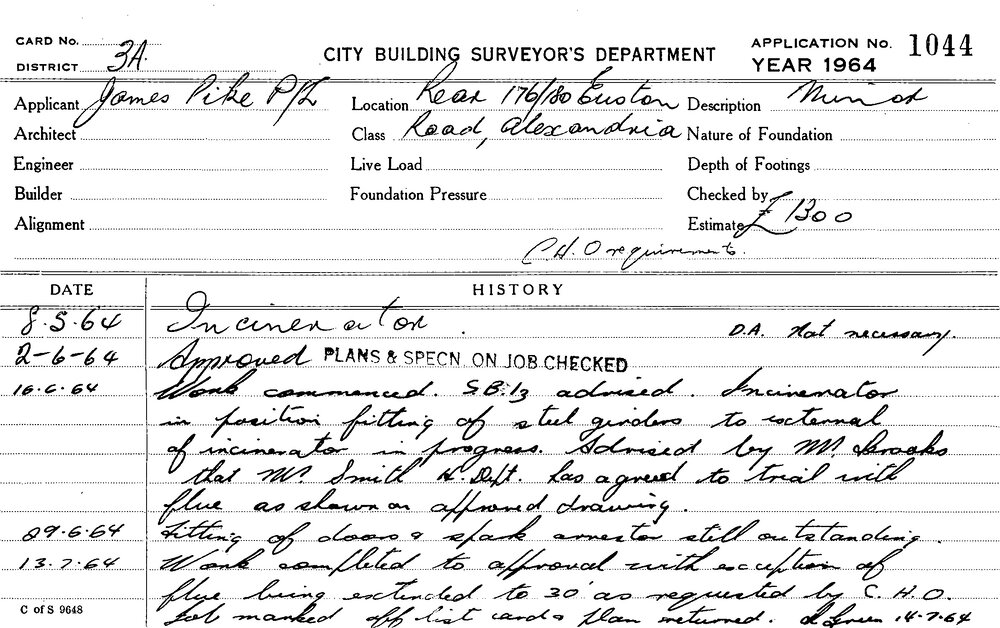 CARD No. CITY BUILDING SURVEYOR'S DEPARTMENT APPLICATION No. 1044
DISTRICT 3A. YEAR 1964
Applicant James Pike P/L Location Rear 176/180 Euston Description Minor
Architect Class Road, Alexandria Nature of Foundation
Engineer Live Load Depth of Footings
Builder Foundation Pressure Checked by
Alignment Estimate £ 1300
C.H.O requirements.
DATE HISTORY
8.5.64 Incinerator. D.A. Not necessary.
2-6-64 Approved PLANS & SPECN. ON JOB CHECKED
16.6.64 Work commenced. S.B.13 advised. Incinerator
in position fitting of steel girders to external
of incinerator in progress. Advised by Mr. Brooks
that Mr. Smith H. Dept. has agreed to trial with
flue as shown on approved drawing.
29.6.64 Fitting of doors & spark arrestor still outstanding.
13.7.64 Work completed to approval with exception of
flue being extended to 30' as requested by C.H.O.
C of S 9648 Job marked off list card & plan returned. Green 14.7.64